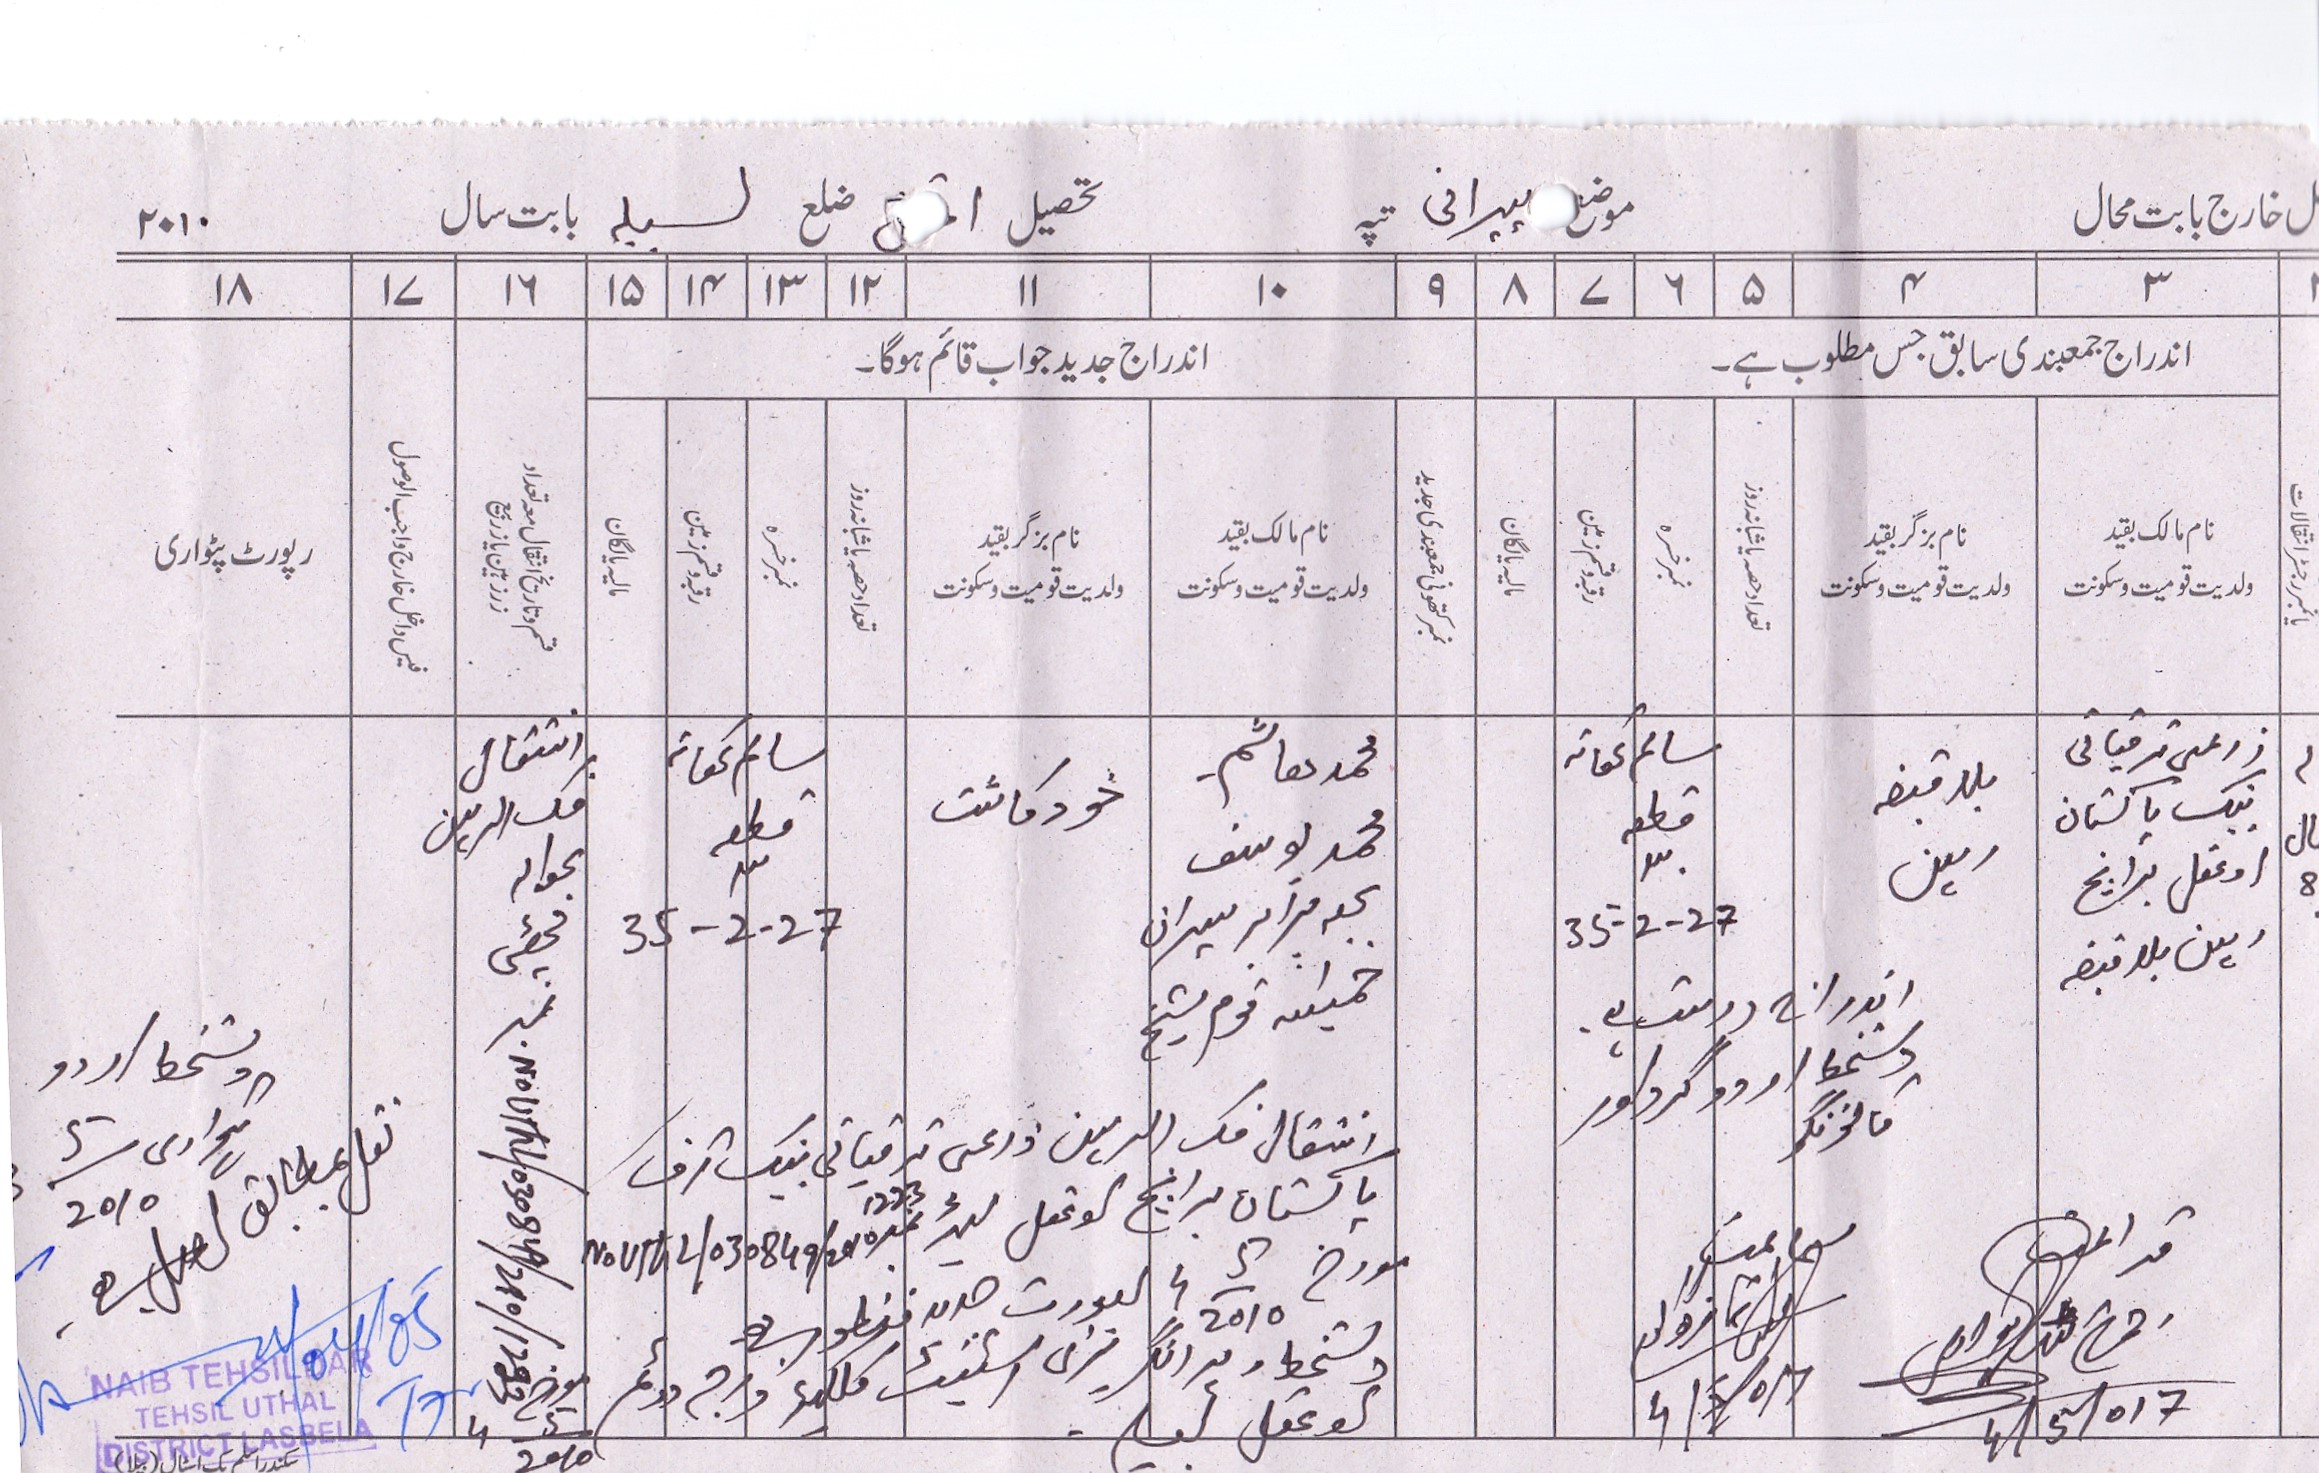 خارج بابت محال موضع پیرانی تپہ تحصیل ضلع لسبیلہ بابت سال ۲۰۱۰
۳ ۴ ۵ ۶ ۷ ۸ ۹ ۱۰ ۱۱ ۱۲ ۱۳ ۱۴ ۱۵ ۱۶ ۱۷ ۱۸
اندراج جمعبندی سابق جس مطلوب ہے۔
اندراج جدید جواب قائم ہوگا۔
یا نمبر رجسٹر انتقالات
نام مالک بقید
ولدیت قومیت و سکونت
نام بزگر بقید
ولدیت قومیت و سکونت
تعداد حصہ یا شبانہ روز
نمبر خسرہ
رقبہ و قسم زمین
مالیہ یا لگان
نمبر کھتونی جمعبندی جدید
نام مالک بقید
ولدیت قومیت و سکونت
نام بزگر بقید
ولدیت قومیت و سکونت
تعداد حصہ یا شبانہ روز
نمبر خسرہ
رقبہ و قسم زمین
مالیہ یا لگان
قسم و تاریخ انتقال معہ تعداد
زر زمین یا زر بیع
فیس داخل خارج واجب الوصول
رپورٹ پٹواری
زرعی ترقیاتی
بینک پاکستان
اوتھل برانچ
رہن بلا قبضہ
بلا قبضہ
رہن
سالم کھاتہ
قطعہ
۳
35-2-27
اندراج درست ہے۔
دستخط اردو گرداور
قانونگو
محمد ہاشم۔
محمد یوسف
بحصہ برابر پسران
قوم شیخ
خود کاشت
سالم کھاتہ
قطعہ
۳
35-2-27
انتقال
فک الرہن
بحوالہ
چھٹی
نمبر
NoUTHL/030849/2010/1223
مورخہ
4/5/2010
انتقال فک الرہن زرعی ترقیاتی بینک آف
پاکستان برانچ اوتھل لیٹر نمبر 1223
NoUTHL/030849/2010
مورخہ 4/5/2010 بصورت ھذا منظور ہے
دستخط بہ انگریزی اسسٹنٹ کلکٹر درجہ دوئم
اوتھل لسبیلہ۔
دستخط اردو
پٹواری 5
2010
نقل بمطابق اصل ہے۔
4/5/017
4/5/017
NAIB TEHSILDAR
TEHSIL UTHAL
DISTRICT LASBELA